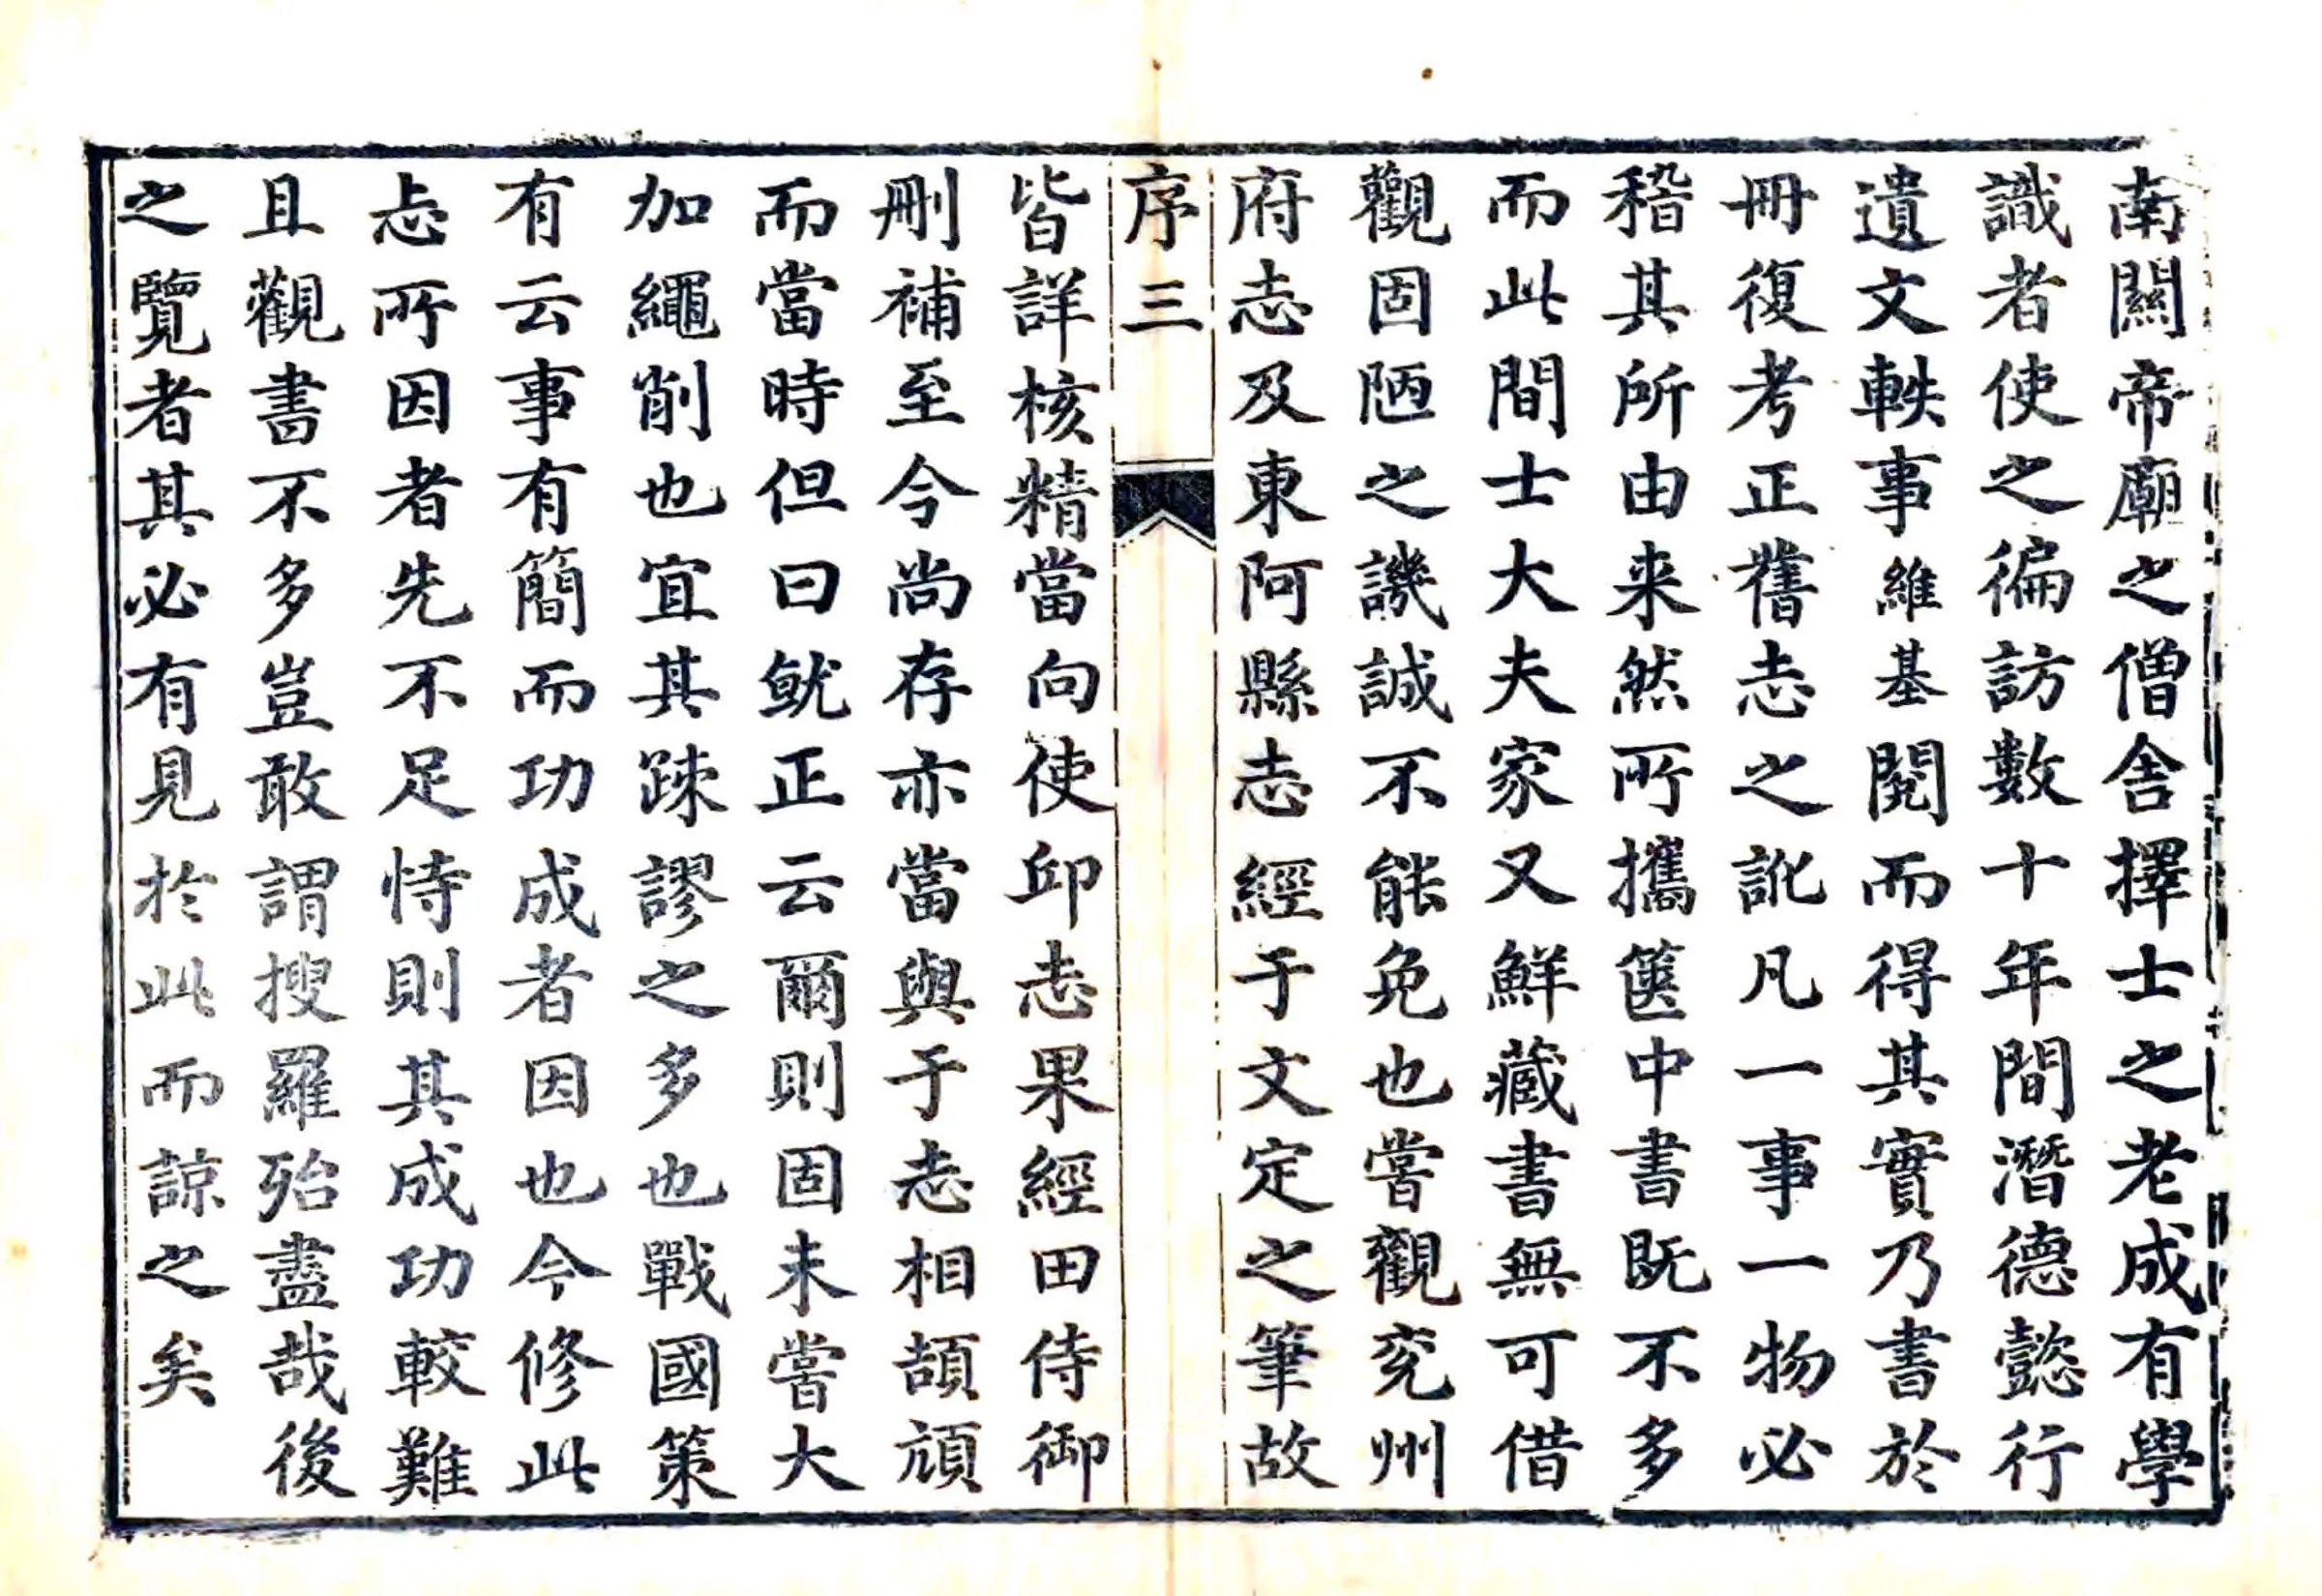 南關帝廟之僧舍擇士之老成有學
識者使之徧訪數十年間潛德懿行
遺文軼事維基閱而得其實乃書於
冊復考正舊志之訛凡一事一物必
稽其所由来然所攜篋中書既不多
而此間士大夫家又鮮藏書無可借
觀固陋之譏誠不能免也嘗觀兖州
府志及東阿縣志經于文定之筆故
序三
皆詳核精當向使邱志果經田侍御
刪補至今尚存亦當與于志相頡頏
而當時但曰就正云爾則固未嘗大
加繩削也宜其踈謬之多也戰國策
有云事有簡而功成者因也今修此
志所因者先不足恃則其成功較難
且觀書不多豈敢謂搜羅殆盡哉後
之覽者其必有見於此而諒之矣